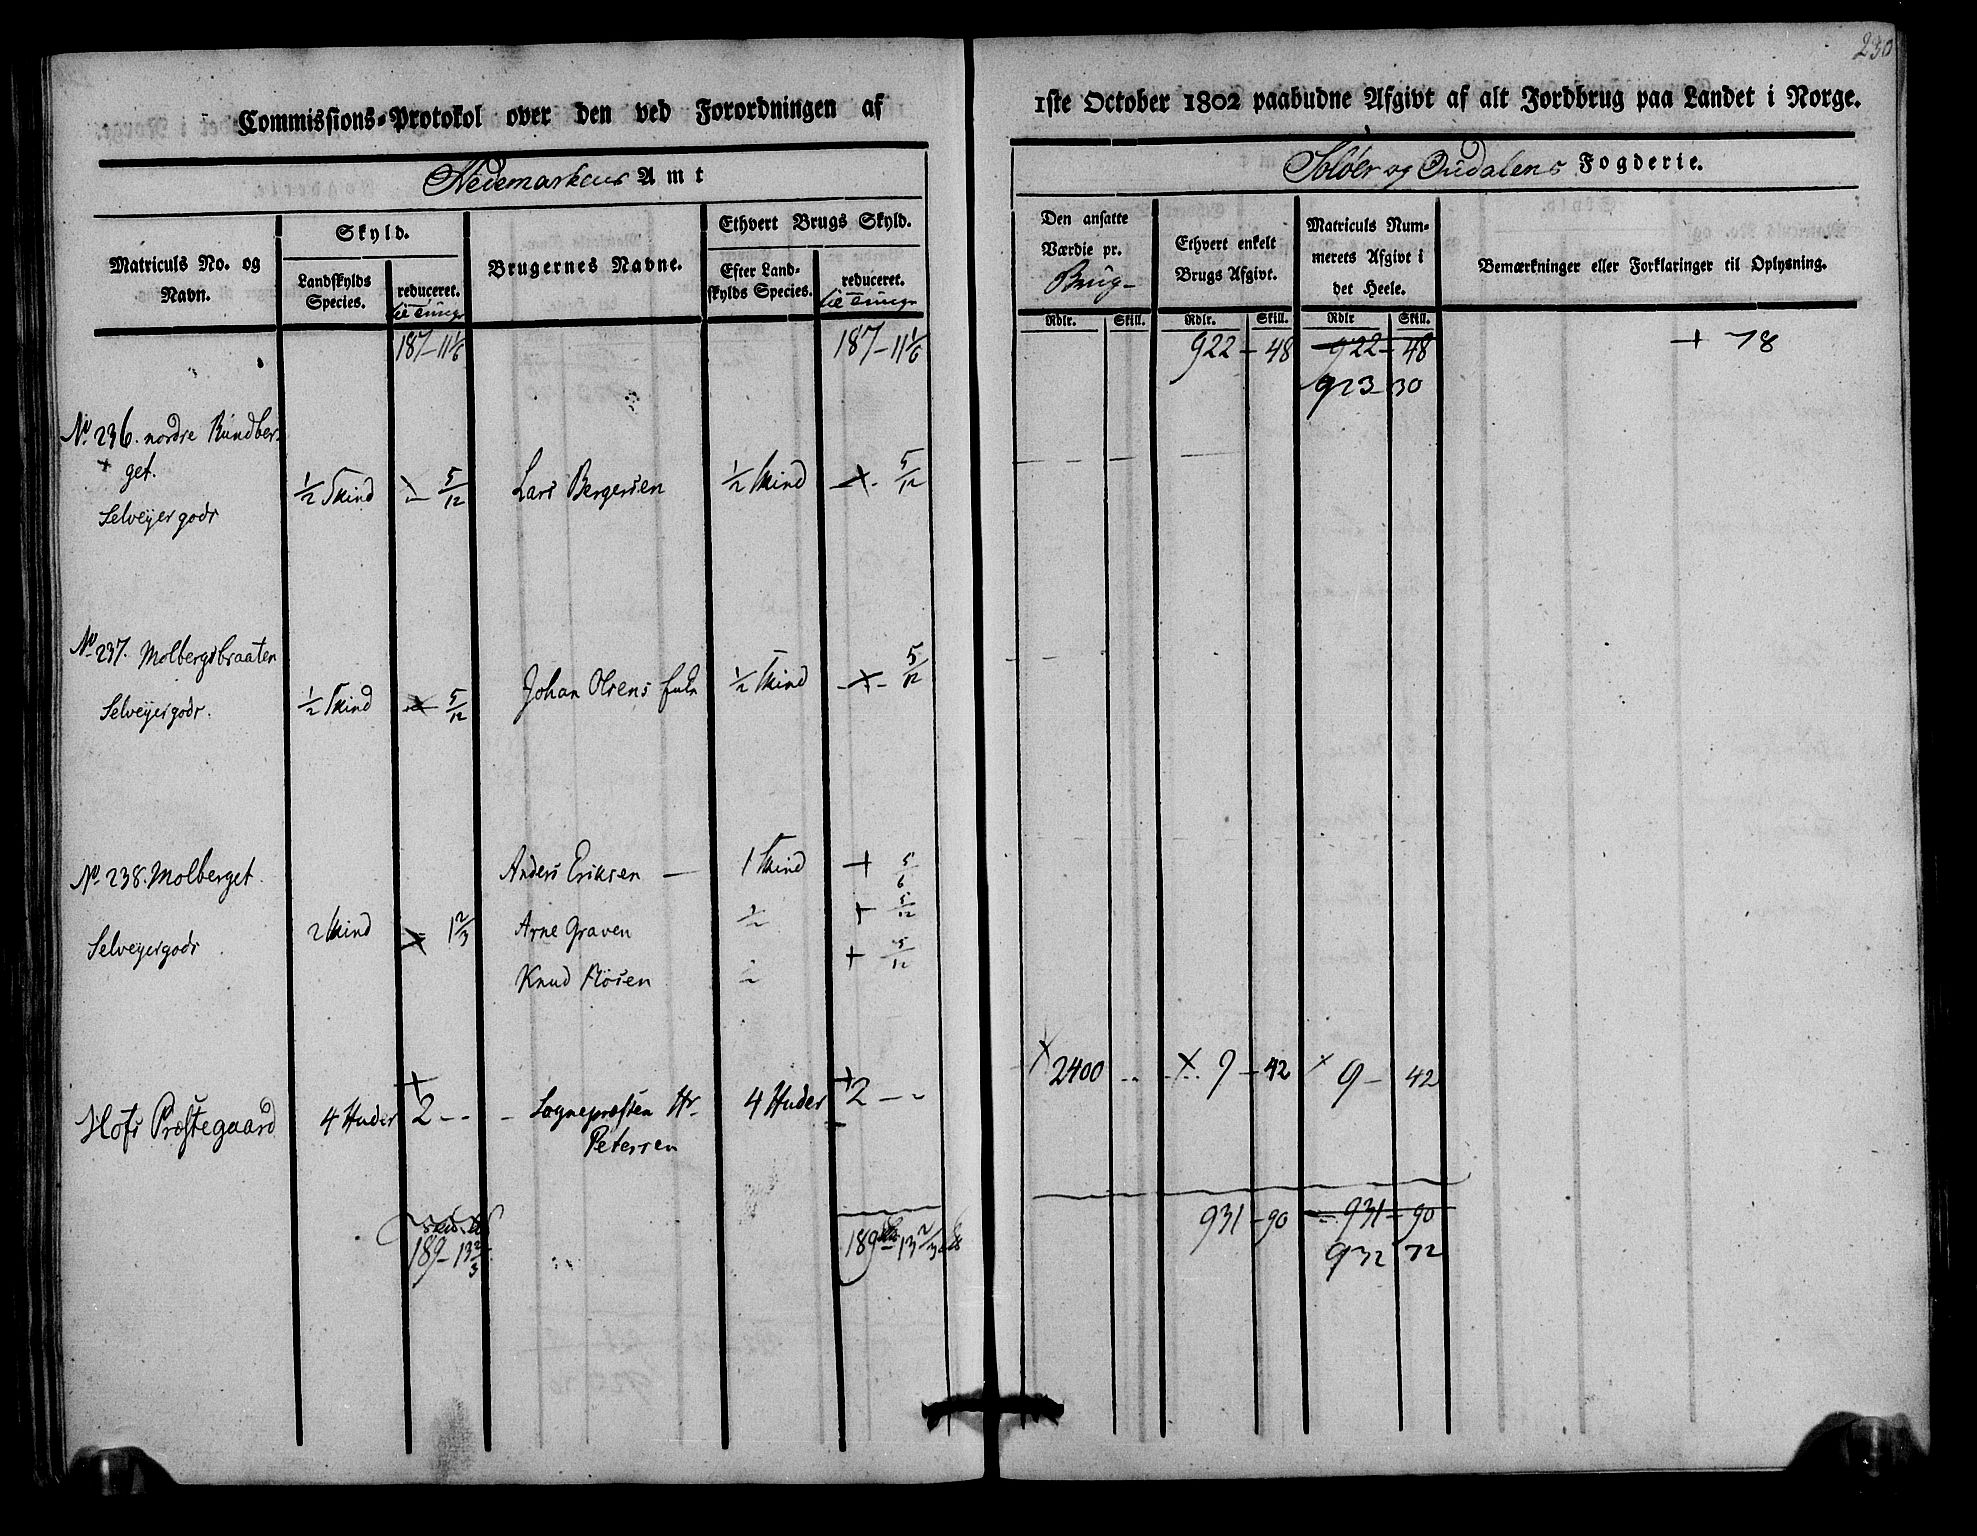 230
Commissions-Protokol over den ved Forordningen af 1ste October 1802 paabudne Afgivt af alt Jordbrug paa Landet i Norge.
Hedemarkens Amt
Soløer og Oudalens Fogderie.
Matriculs No. og Navn.
Skyld.
Landskylds Species.
reduceret.
Brugernes Navne.
Ethvert Brugs Skyld.
Efter Land-
skylds Species.
reduceret.
Den ansatte
Værdie pr.
Brug
Ethvert enkelt
Brugs Afgivt.
Matriculs Num-
merets Afgivt i
det Heele.
Bemærkninger eller Forklaringer til Oplysning.
Rdlr. Skill. Rdlr. Skill. Rdlr Skill.
187 - 11 1/6 187 - 11 1/6 922 - 48 922 - 48 + 78
923 30
No. 236. nordre Rundber-
get.
Selveyergods
1/2 Skind 5/12 Lars Bergersen 1/2 Skind 5/12
No. 237. Molbergsbraaten
Selveyergods.
1/2 Skind 5/12 Johan Olsens 1/2 Skind 5/12
No. 238. Molberget.
Selveyergods
2 Skind 1 2/3
Anders Eriksen 1 Skind + 5/6
Arne Graven 1/2 + 5/12
Knud 1/2 + 5/12
Hofs Præstegaard 4 Huder 2 - - Sognepræsten Hr. 4 Huder 2 - - 2400 9 - 42 9 - 42
Petersen
189 - 13 2/3 189 13 2/3 931 - 90 931 - 90
932 72